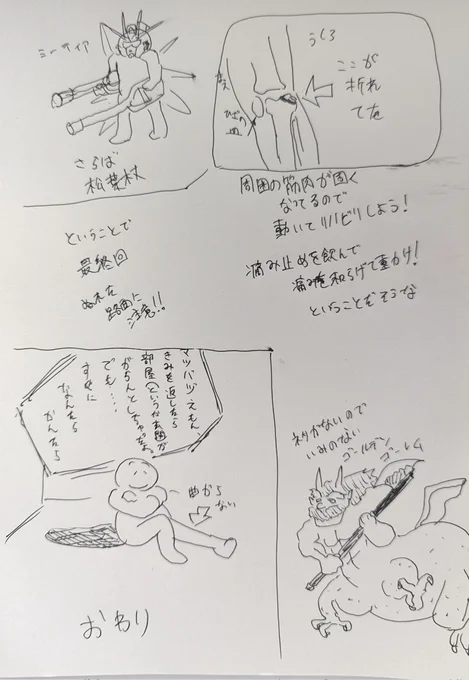 うしろ
ここが
折れ
てた
まえ
ひざの
皿
周囲の筋肉が固く
なってるので
動いてリハビリしよう!
痛み止めを飲んで
痛みを和らげて動かけ!
ということだそうな
ミーティア
さらば
松葉杖
ということで
最終回
ぬれた
路面に
注意!!
マツバヅえもん
きみを返したら
部屋(というか玄関)が
がらんとしちゃったよ
でも…
すぐに
なんたら
かんたら
曲がら
ない
おわり
ネタがないので
いみのない
ゴールデン
ゴーレム